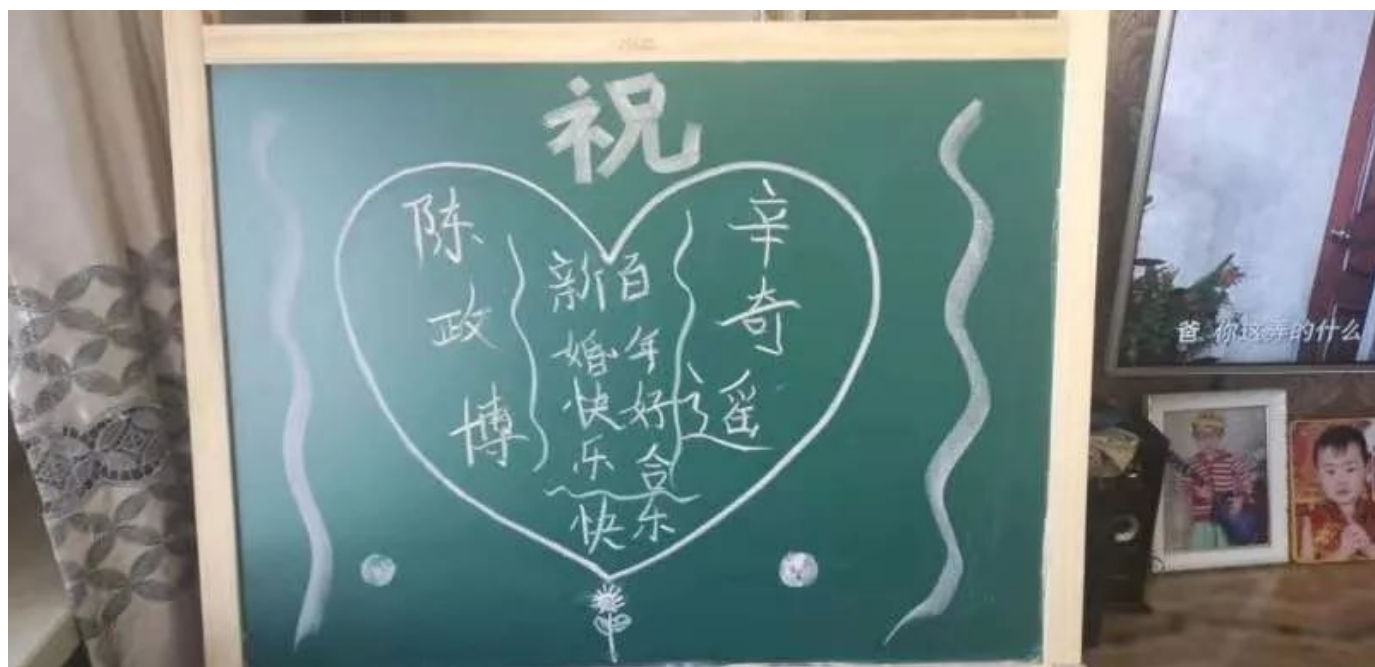 祝
陈政博
新婚快乐
百年好合
快乐
辛奇遥
爸 你这弄的什么